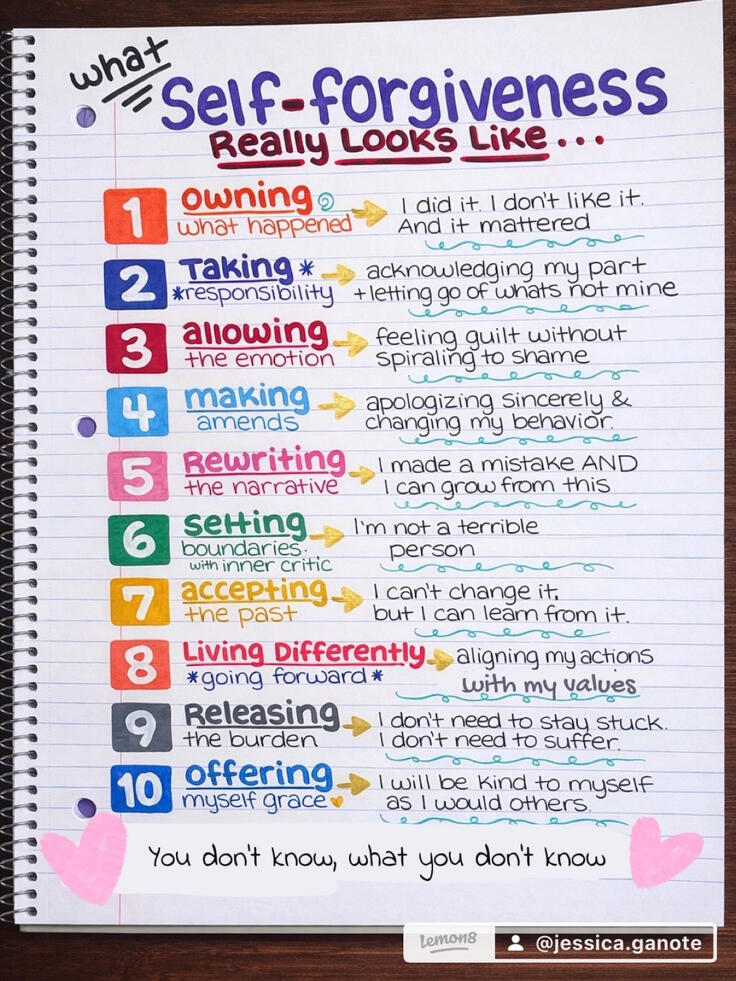 what
Self-forgiveness
Really Looks Like...
1 owning
what happened
I did it. I don't like it.
And it mattered
2 Taking *
*responsibility
acknowledging my part
+ letting go of whats not mine
3 allowing
the emotion
feeling guilt without
spiraling to shame
4 making
amends
apologizing sincerely &
changing my behavior.
5 Rewriting
the narrative
I made a mistake AND
I can grow from this
6 setting
boundaries.
with inner critic
I'm not a terrible
person
7 accepting
the past
I can't change it,
but I can learn from it.
8 Living Differently
*going forward*
aligning my actions
with my values
9 Releasing
the burden
I don't need to stay stuck.
I don't need to suffer.
10 offering
myself grace
I will be kind to myself
as I would others.
You don't know, what you don't know
lemon8
@jessica.ganote